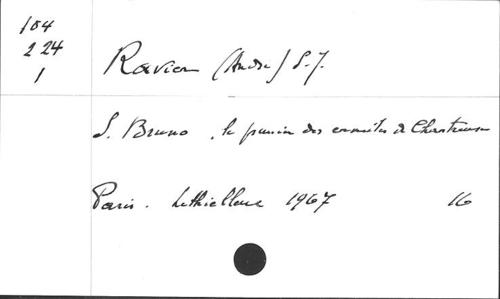 104
224
1
Ravier (André) S.J.
S. Bruno, le premier des ermites de Chartreuse
Paris. Lethielleux 1967 16